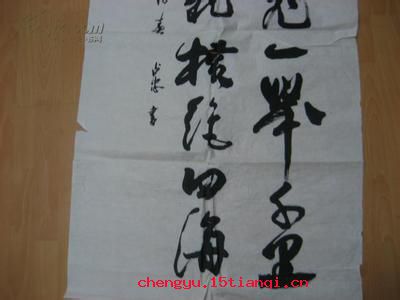 飞一举千里
就横绝四海
春
书
chengyu.15tianqi.cn